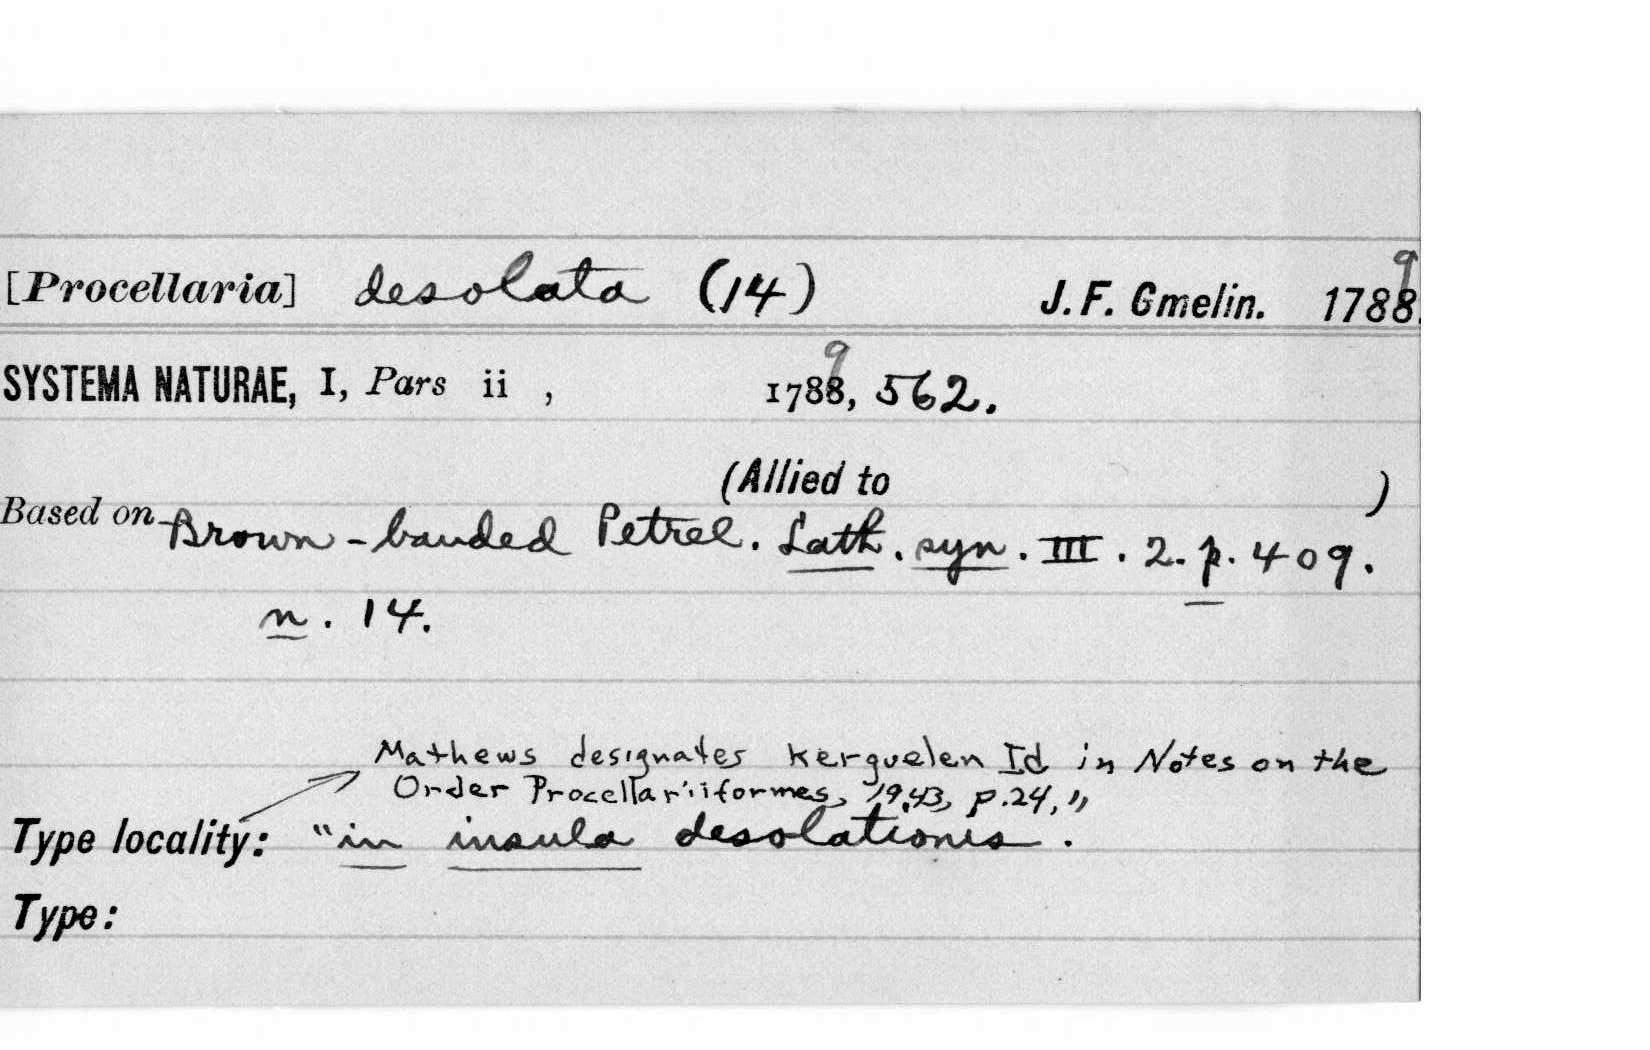 [Procellaria] desolata (14) J. F. Gmelin. 1788.9
SYSTEMA NATURAE, I, Pars ii , 1788,9 562.
(Allied to )
Based on Brown-banded Petrel. Lath. syn. III. 2. p. 409.
n. 14.
Mathews designates Kerguelen Id in Notes on the
Order Procellariiformes, 1943, p. 24,
Type locality: "in insula desolationis."
Type: